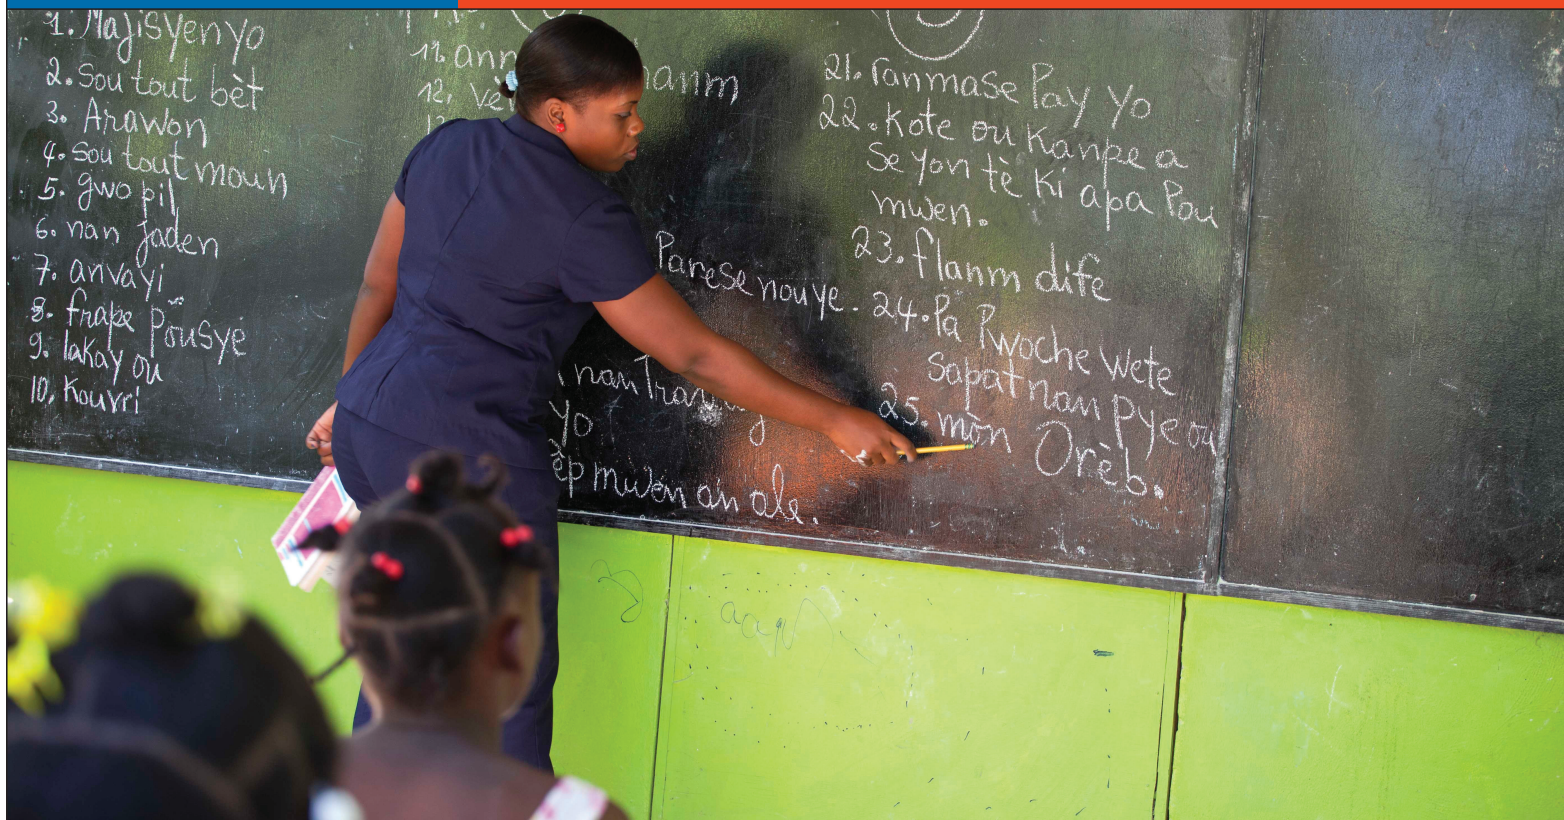 1. Majisyen yo
2. Sou tout bèt
3. Arawon
4. Sou tout moun
5. gwo pil
6. nan jaden
7. anvayi
8. frape pousyè
9. lakay ou
10, Kouvri
11. ann
12, Vè
Parese nou ye.
nan
yo
èp mwen an ale.
21. ranmase Pay yo
22. Kote ou Kanpe a
Se yon tè Ki apa Pou
mwen.
23. flanm dife
24. Pa Pwoche Wete
Sapat nan pye ou
25. mòn Orèb.